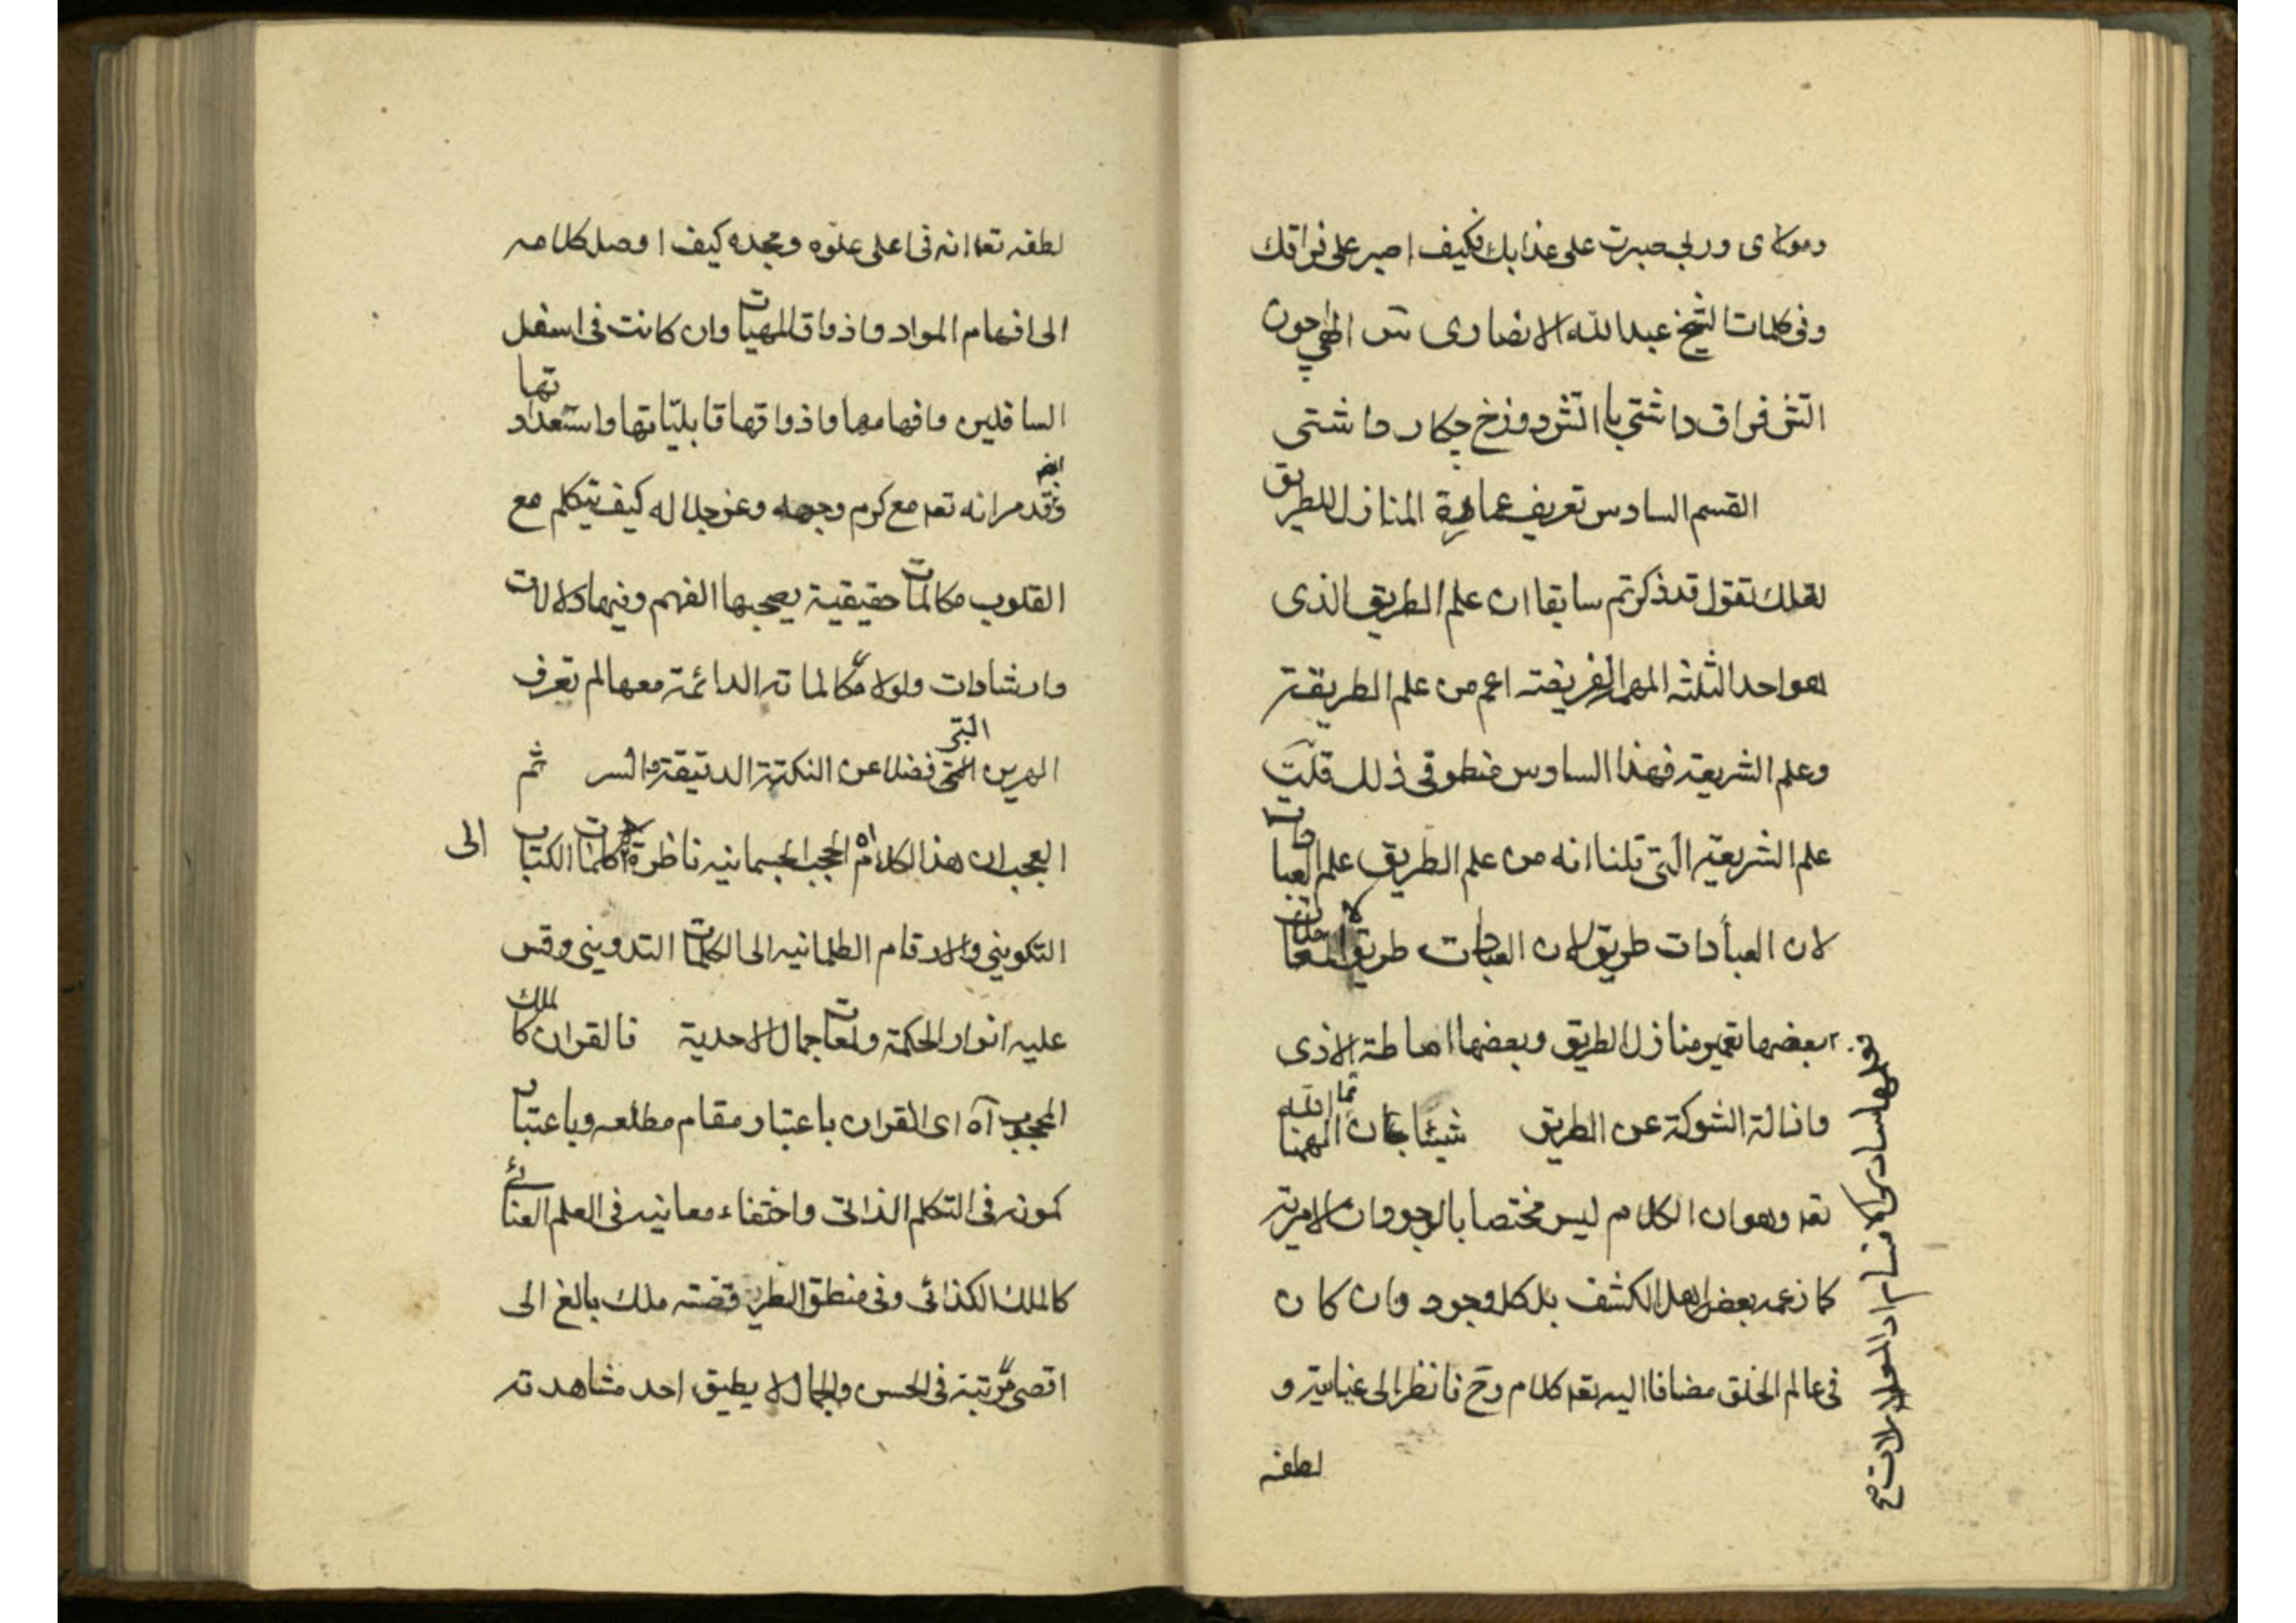 ومولای وربی صبرت علی عذابك فكيف اصبر علی فراقك
وفی كلمات الشیخ عبد الله الانصاری الهی چون
اتش فراق داشتی با اتش دوزخ چكار داشتی
القسم السادس تعریف عمارة المنازل للطریق
لعلك تقول قد ذكرتم سابقا ان علم الطریق الذی
هو احد الثلثة المهمة الفریضة اعم من علم الطریقة
وعلم الشریعة فهذا السادس منطو فی ذلك قلت
علم الشریعة التی قلنا انه من علم الطریق علم العبادات
لان العبادات طریق لان العبادات طریق
بعضها تعمیر منازل الطریق وبعضها اماطة الاذی
وازالة الشوكة عن الطریق شیئا الهنا
تعه وهو ان الكلام لیس مختصا بالوجودات الامریة
كما زعمه بعض اهل الكشف بل كل وجود وان كان
فی عالم الخلق مضافا الیه تعه كلام وح فانظر الی عنایته و
لطفه
لطفه تعا انه فی اعلی علوه ومجده كیف اوصل كلامه
الی افهام المواد واذواق المهیات وان كانت فی اسفل
السافلین وافهامها واذواقها قابلیاتها واستعداداتها
وقد مر انه تعه مع كرم وجهه وعز جلاله كیف یتكلم مع
القلوب مكالمات حقیقیة یصحبها الفهم وفیها دلالات
وارشادات ولولا مكالماته الدائمة معها لم تعرف
الهر من البر فضلا عن النكتة الدقیقة والسر ثم
العجب ان هذا الكلام اه الحجب الجسمانیه ناظرة الی كلمات الكتاب
التكوینی والارقام الظلمانیه الی الكلمات التدوینی وقس
علیه انوار الحكمة ولمعات جمال الاحدیة فالقران كالملك
المحجوب آه ای القران باعتبار مقام مطلعه وباعتبار
كمونه فی التكلم الذاتی واختفاء معانیه فی العلم العنائی
كالملك الكذائی وفی منطق الطیر قصة ملك بالغ الی
اقصی مرتبة فی الحسن والجمال لا یطیق احد مشاهدته